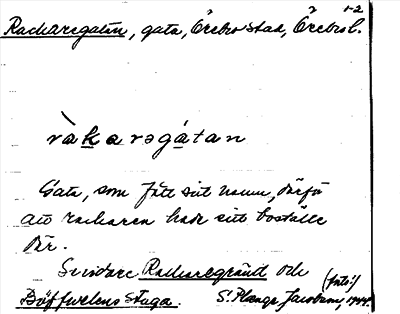 1-2
Rackaregatan, gata, Örebro stad, Örebro l.
ràkaregátan
Gata, som fått sitt namn, därför
att rackaren hade sitt boställe
där.
Se vidare Rackaregränd och
(forts:)
Böffwelens Stuga. S. 1944.